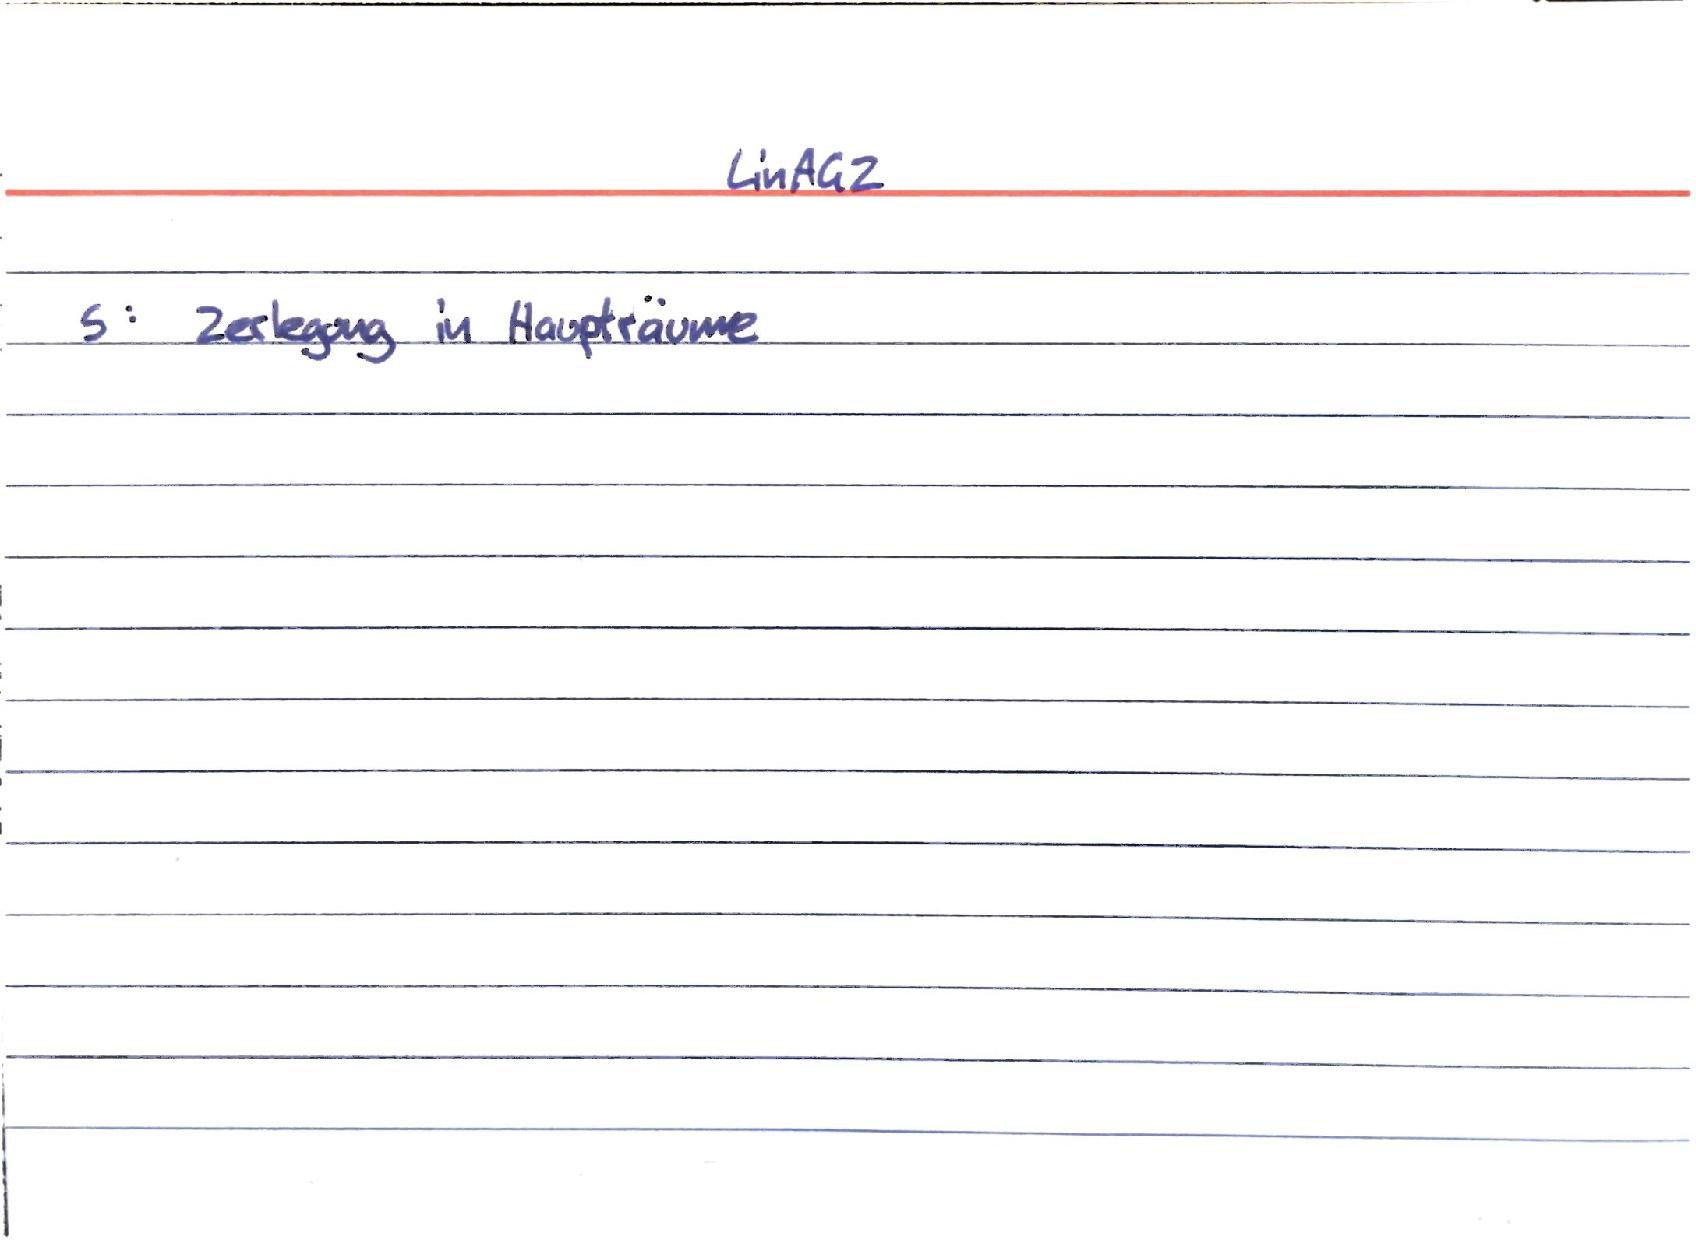 LinAG2
S: Zerlegung in Haupträume